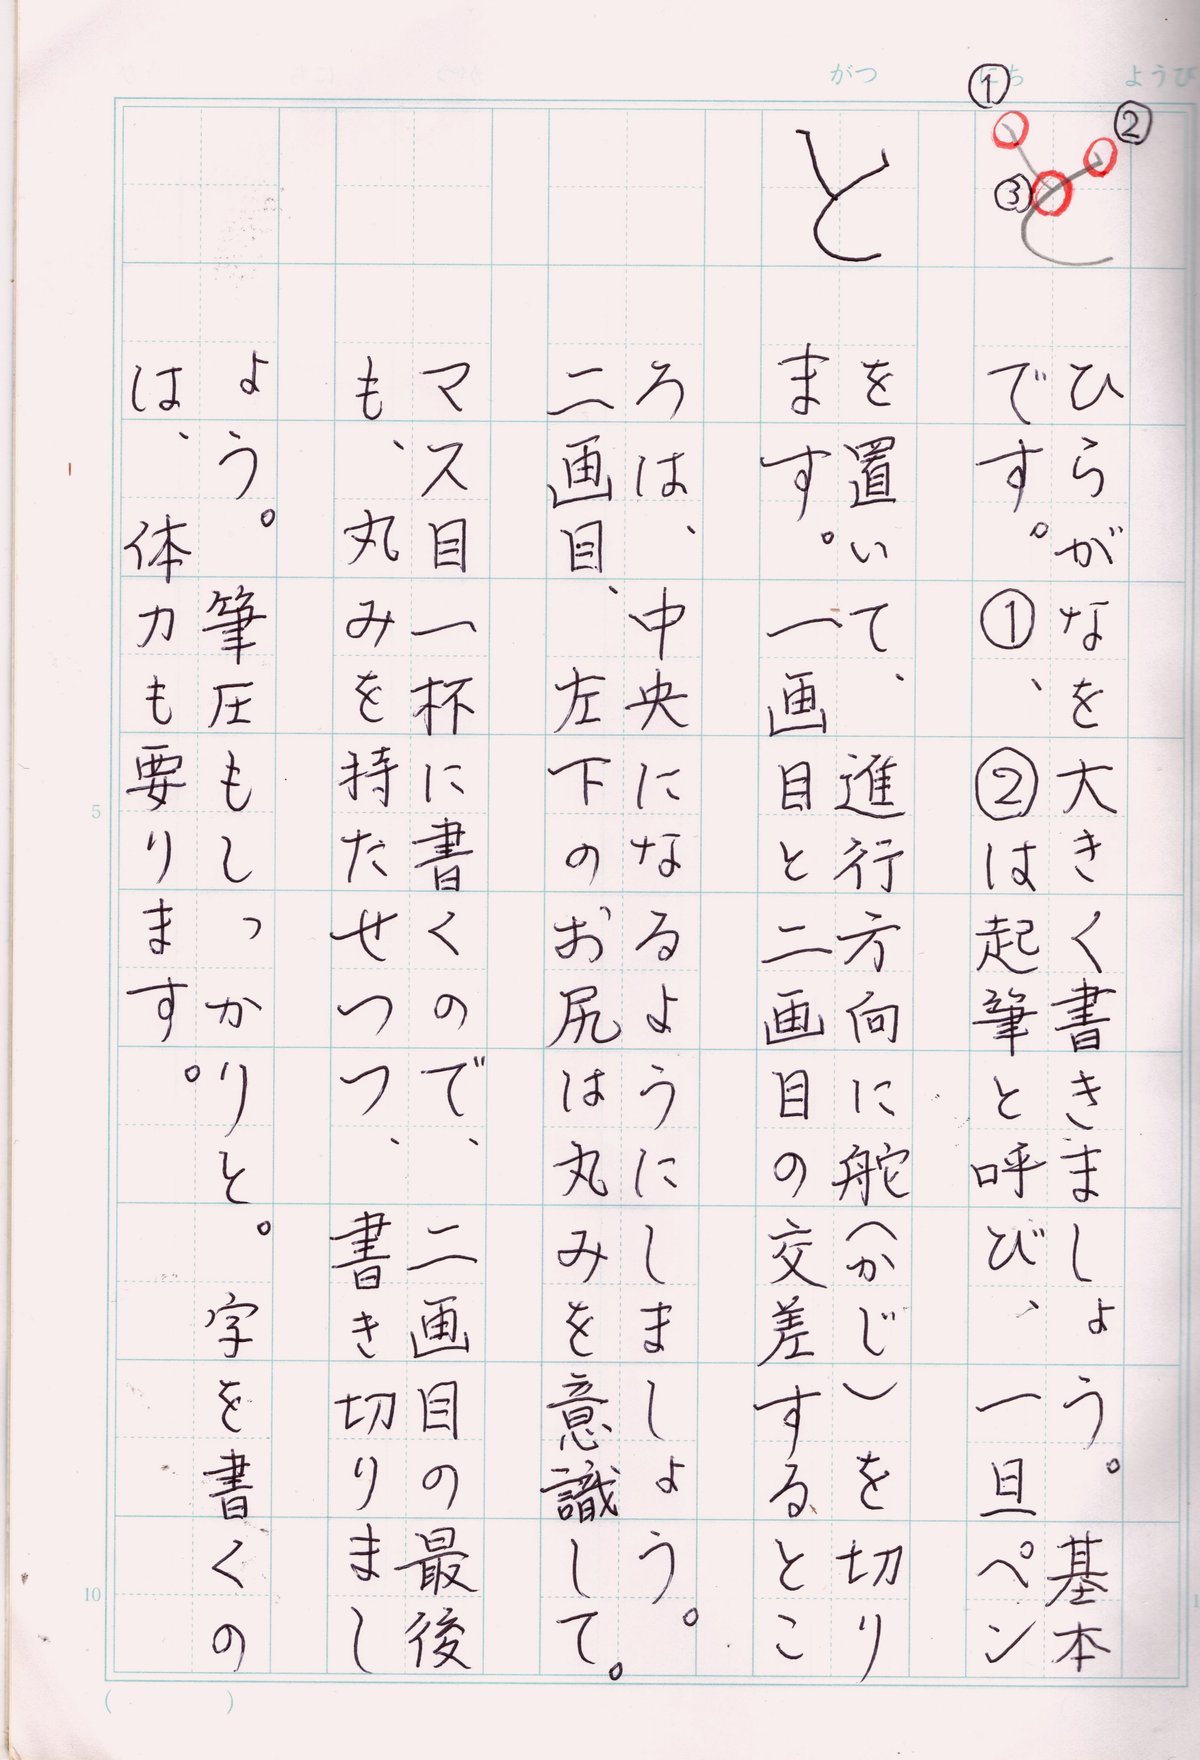 がつ にち ようび
① ② ③ と
と
ひらがなを大きく書きましょう。基本
です。①、②は起筆と呼び、一旦ペン
を置いて、進行方向に舵(かじ)を切り
ます。一画目と二画目の交差するとこ
ろは、中央になるようにしましょう。
二画目、左下のお尻は丸みを意識して。
マス目一杯に書くので、二画目の最後
も、丸みを持たせつつ、書き切りまし
ょう。筆圧もしっかりと。字を書くの
は、体力も要ります。
5
10
( )